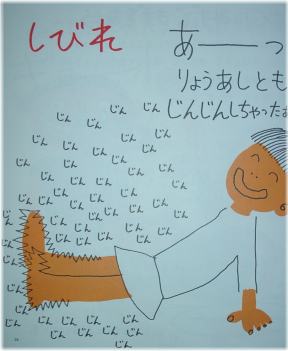 しびれ
あーーっ
りょうあしとも
じんじんしちゃった
じん じん
じん じん じん
じん じん じん じん
じん じん じん じん
じん じん じん じん じん
じん じん じん じん じん
じん じん じん じん
じん じん じん じん じん
じん じん じん じん じん
じん じん じん じん
じん じん じん じん
じん
じん
じん
じん じん じん じん じん
じん じん じん じん
じん じん